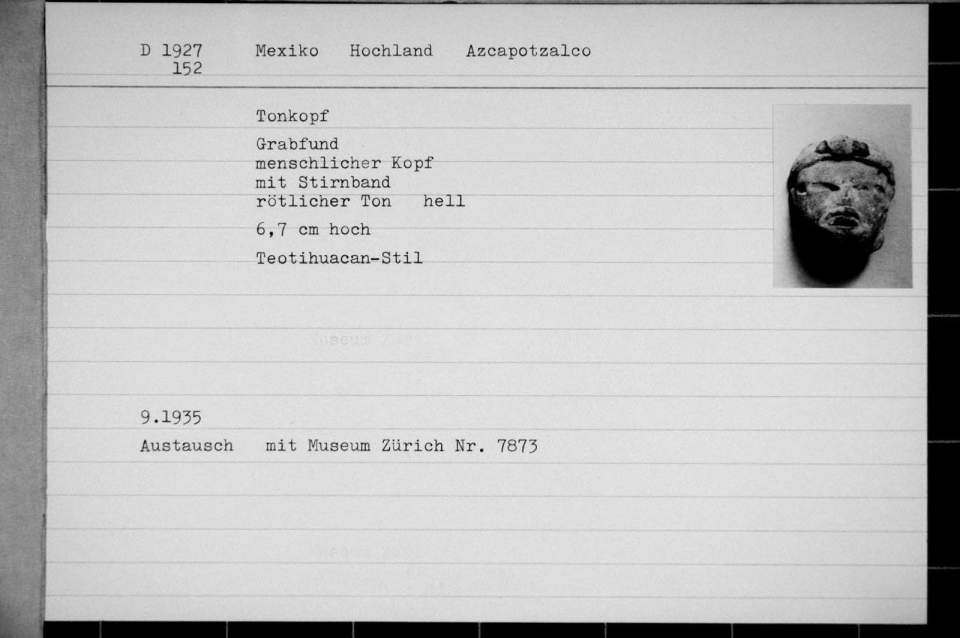 D 1927 Mexiko Hochland Azcapotzalco
152
Tonkopf
Grabfund
menschlicher Kopf
mit Stirnband
rötlicher Ton hell
6,7 cm hoch
Teotihuacan-Stil
9.1935
Austausch mit Museum Zürich Nr. 7873